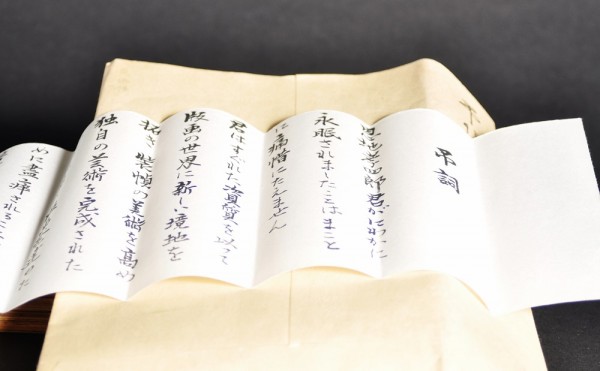 弔詞
恩地孝四郎君がにわかに
永眠されましたことはまこと
に痛惜にたえません
君はすぐれた資質を以て
版画の世界に新しい境地を
拓き装幀の美術を高め
独自の芸術を完成された
めに盡瘁される